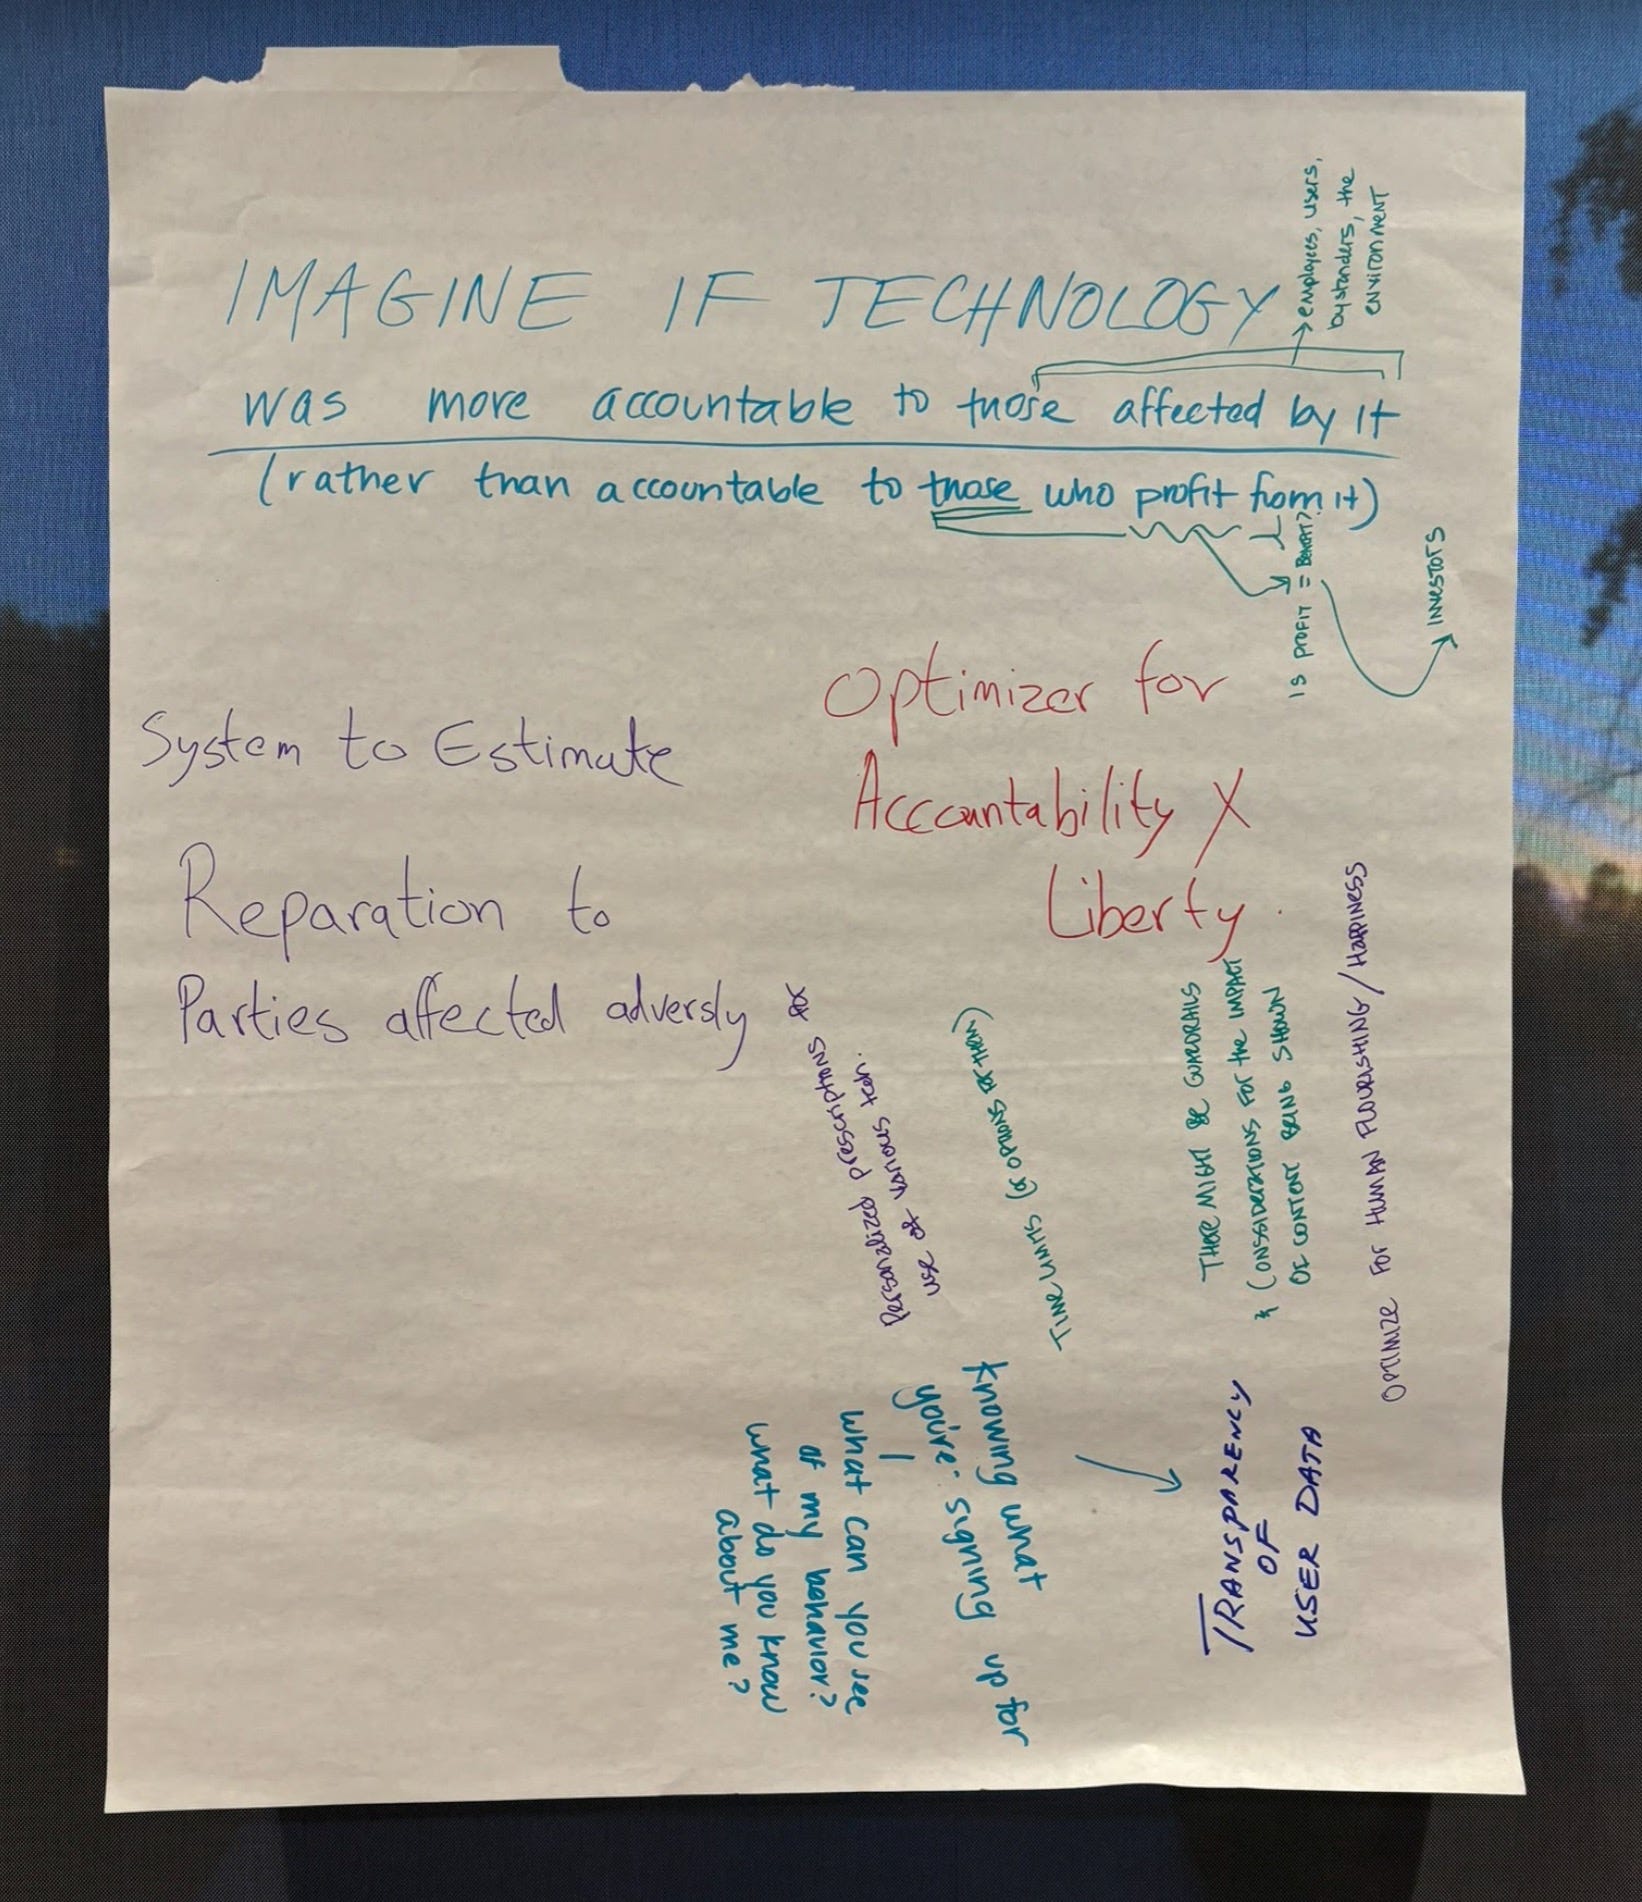 IMAGINE IF TECHNOLOGY
was more accountable to those affected by it
(rather than accountable to those who profit from it)
employees, users,
bystanders, the
environment
IS PROFIT = BENEFIT?
INVESTORS
System to Estimate
Reparation to
Parties affected adversly
Optimizer for
Acccountability X
Liberty.
Personalized prescriptions for
use of various tech.
TIME LIMITS (or OPTIONS FOR THEM)
THERE MIGHT BE GUARDRAILS
& CONSSIDERATIONS FOR the IMPACT
OF CONTENT BEING SHOWN
OPTIMIZE FOR HUMAN FLOURISHING/HAPPINESS
knowing what
you're signing up for
what can you see
of my behavior?
what do you know
about me?
TRANSPARENCY
OF
USER DATA